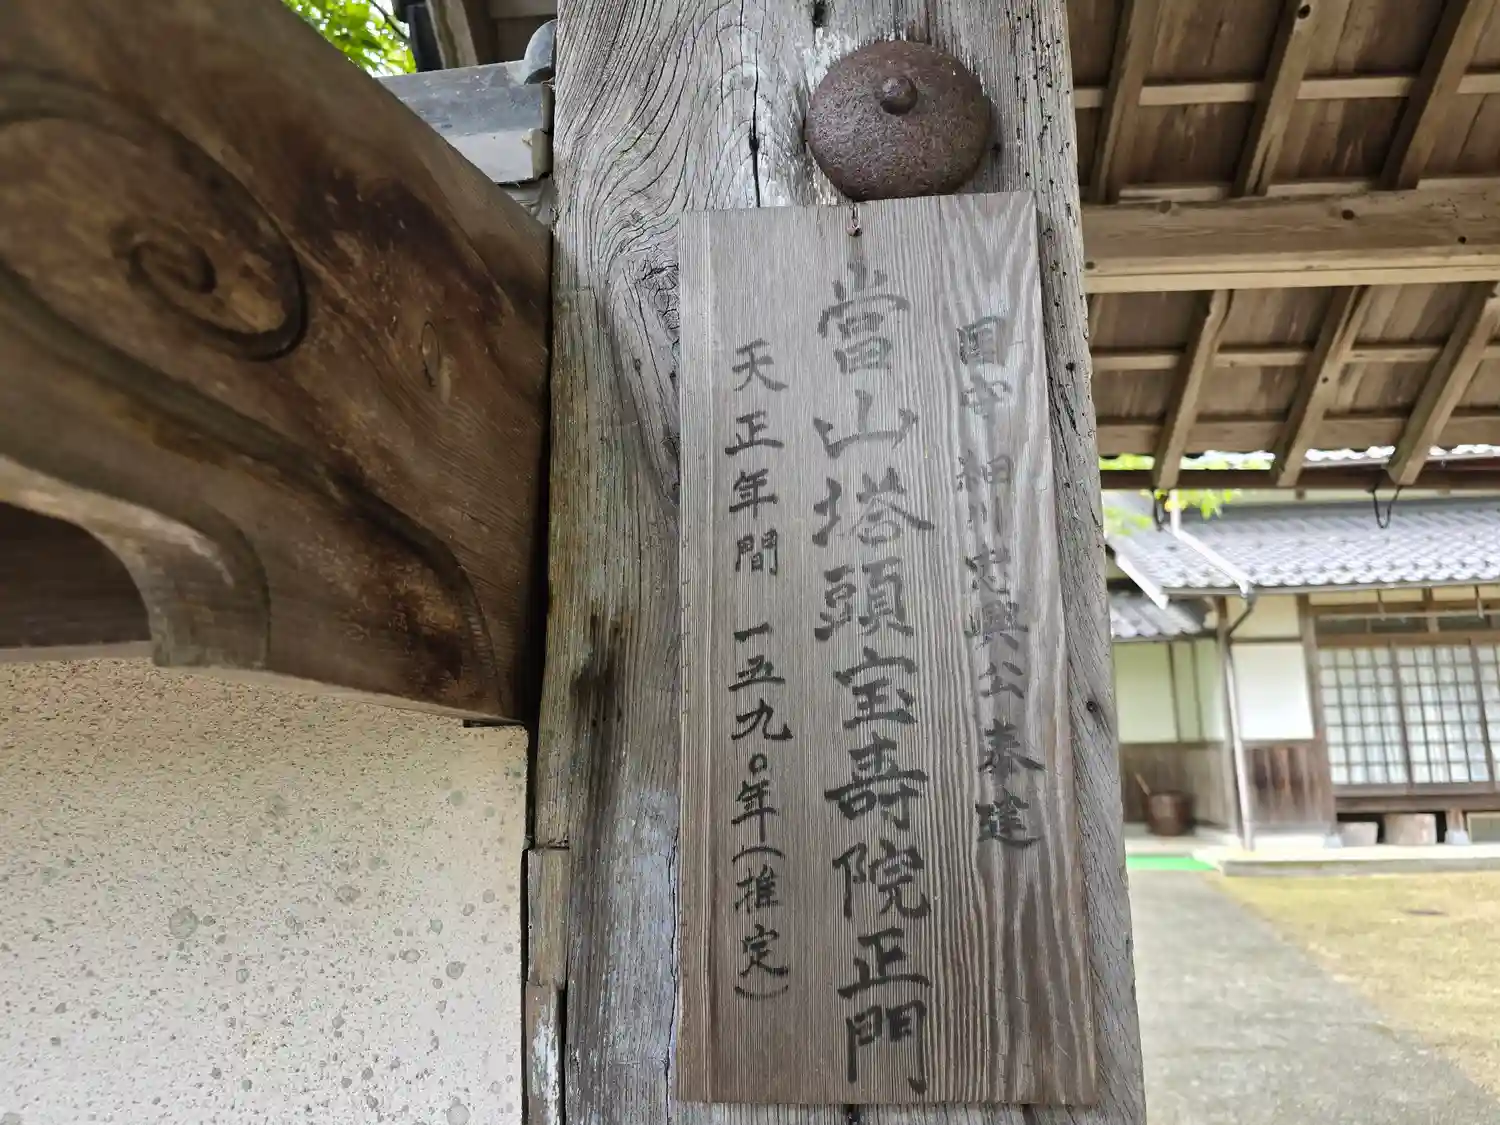 国守細川忠興公奉建
當山塔頭宝寿院正門
天正年間 一五九〇年(推定)